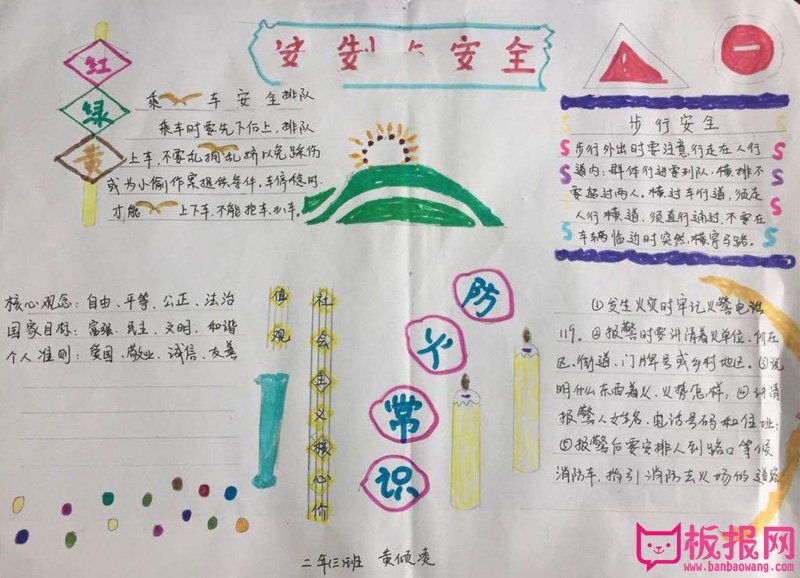 安全
红
绿
黄
乘车安全排队
乘车时要先下后上,排队
上车,不要乱拥乱挤以免踩伤
或为小偷作案提供条件,车停稳时
才能上下车,不能抢车、扒车。
步行安全
步行外出时要注意,行走在人行
道内,群体行进要列队,横排不
要超过两人。横过车行道,须走
人行横道,须直行通过,不要在
车辆临近时突然横穿马路。
核心观念:自由、平等、公正、法治
国家目标:富强、民主、文明、和谐
个人准则:爱国、敬业、诚信、友善
社会主义核心价
值观
防火常识
①发生火灾时牢记火警电话
119。②报警时要讲清着火单位、所在
区、街道、门牌号或乡村地区。③说
明什么东西着火,火势怎样;④讲清
报警人姓名、电话号码和住址;
⑤报警后要安排人到路口等候
消防车,指引消防去火场的道路
二年(三)班 黄倾凌
板报网
www.banbaowang.com